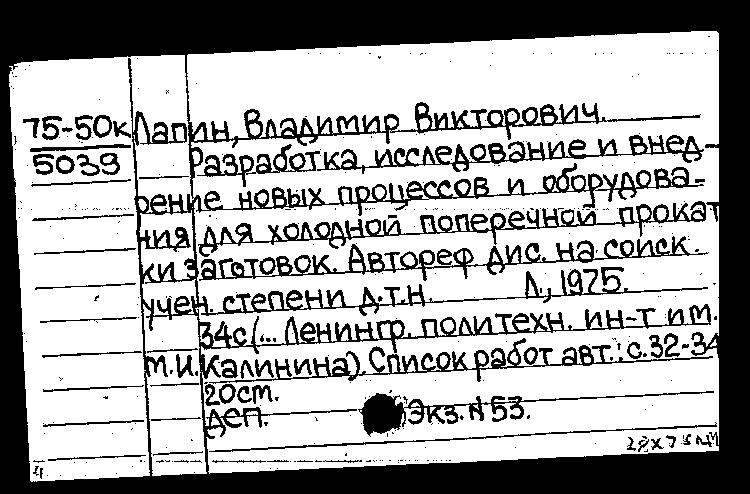 75-50к Лапин, Владимир Викторович.
5039 Разработка, исследование и внед-
рение новых процессов и оборудова-
ния для холодной поперечной прокат
ки заготовок. Автореф дис. на соиск.
учен. степени д.т.н. Л., 1975.
34с (... Ленингр. политехн. ин-т им.
М.И. Калинина) Список работ авт.: с.32-34
20см.
ДСП. Экз. №53.
4